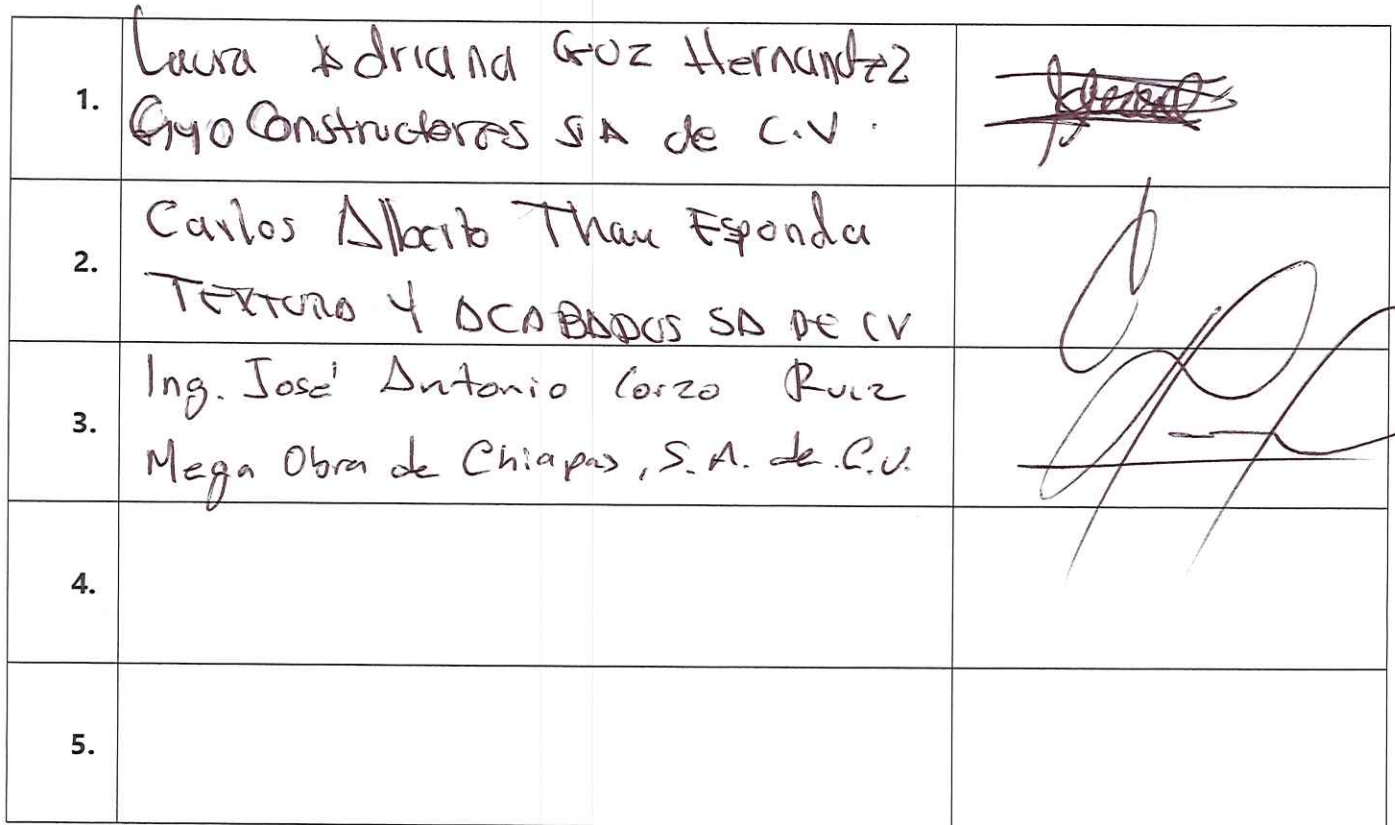 1.
Laura Adriana Goz Hernandez
Gyo Constructores SA de C.V.
2.
Carlos Alberto Thau Esponda
TEXTURA Y ACABADOS SA DE CV
3.
Ing. José Antonio Corzo Ruiz
Mega Obra de Chiapas, S.A. de.C.V.
4.
5.